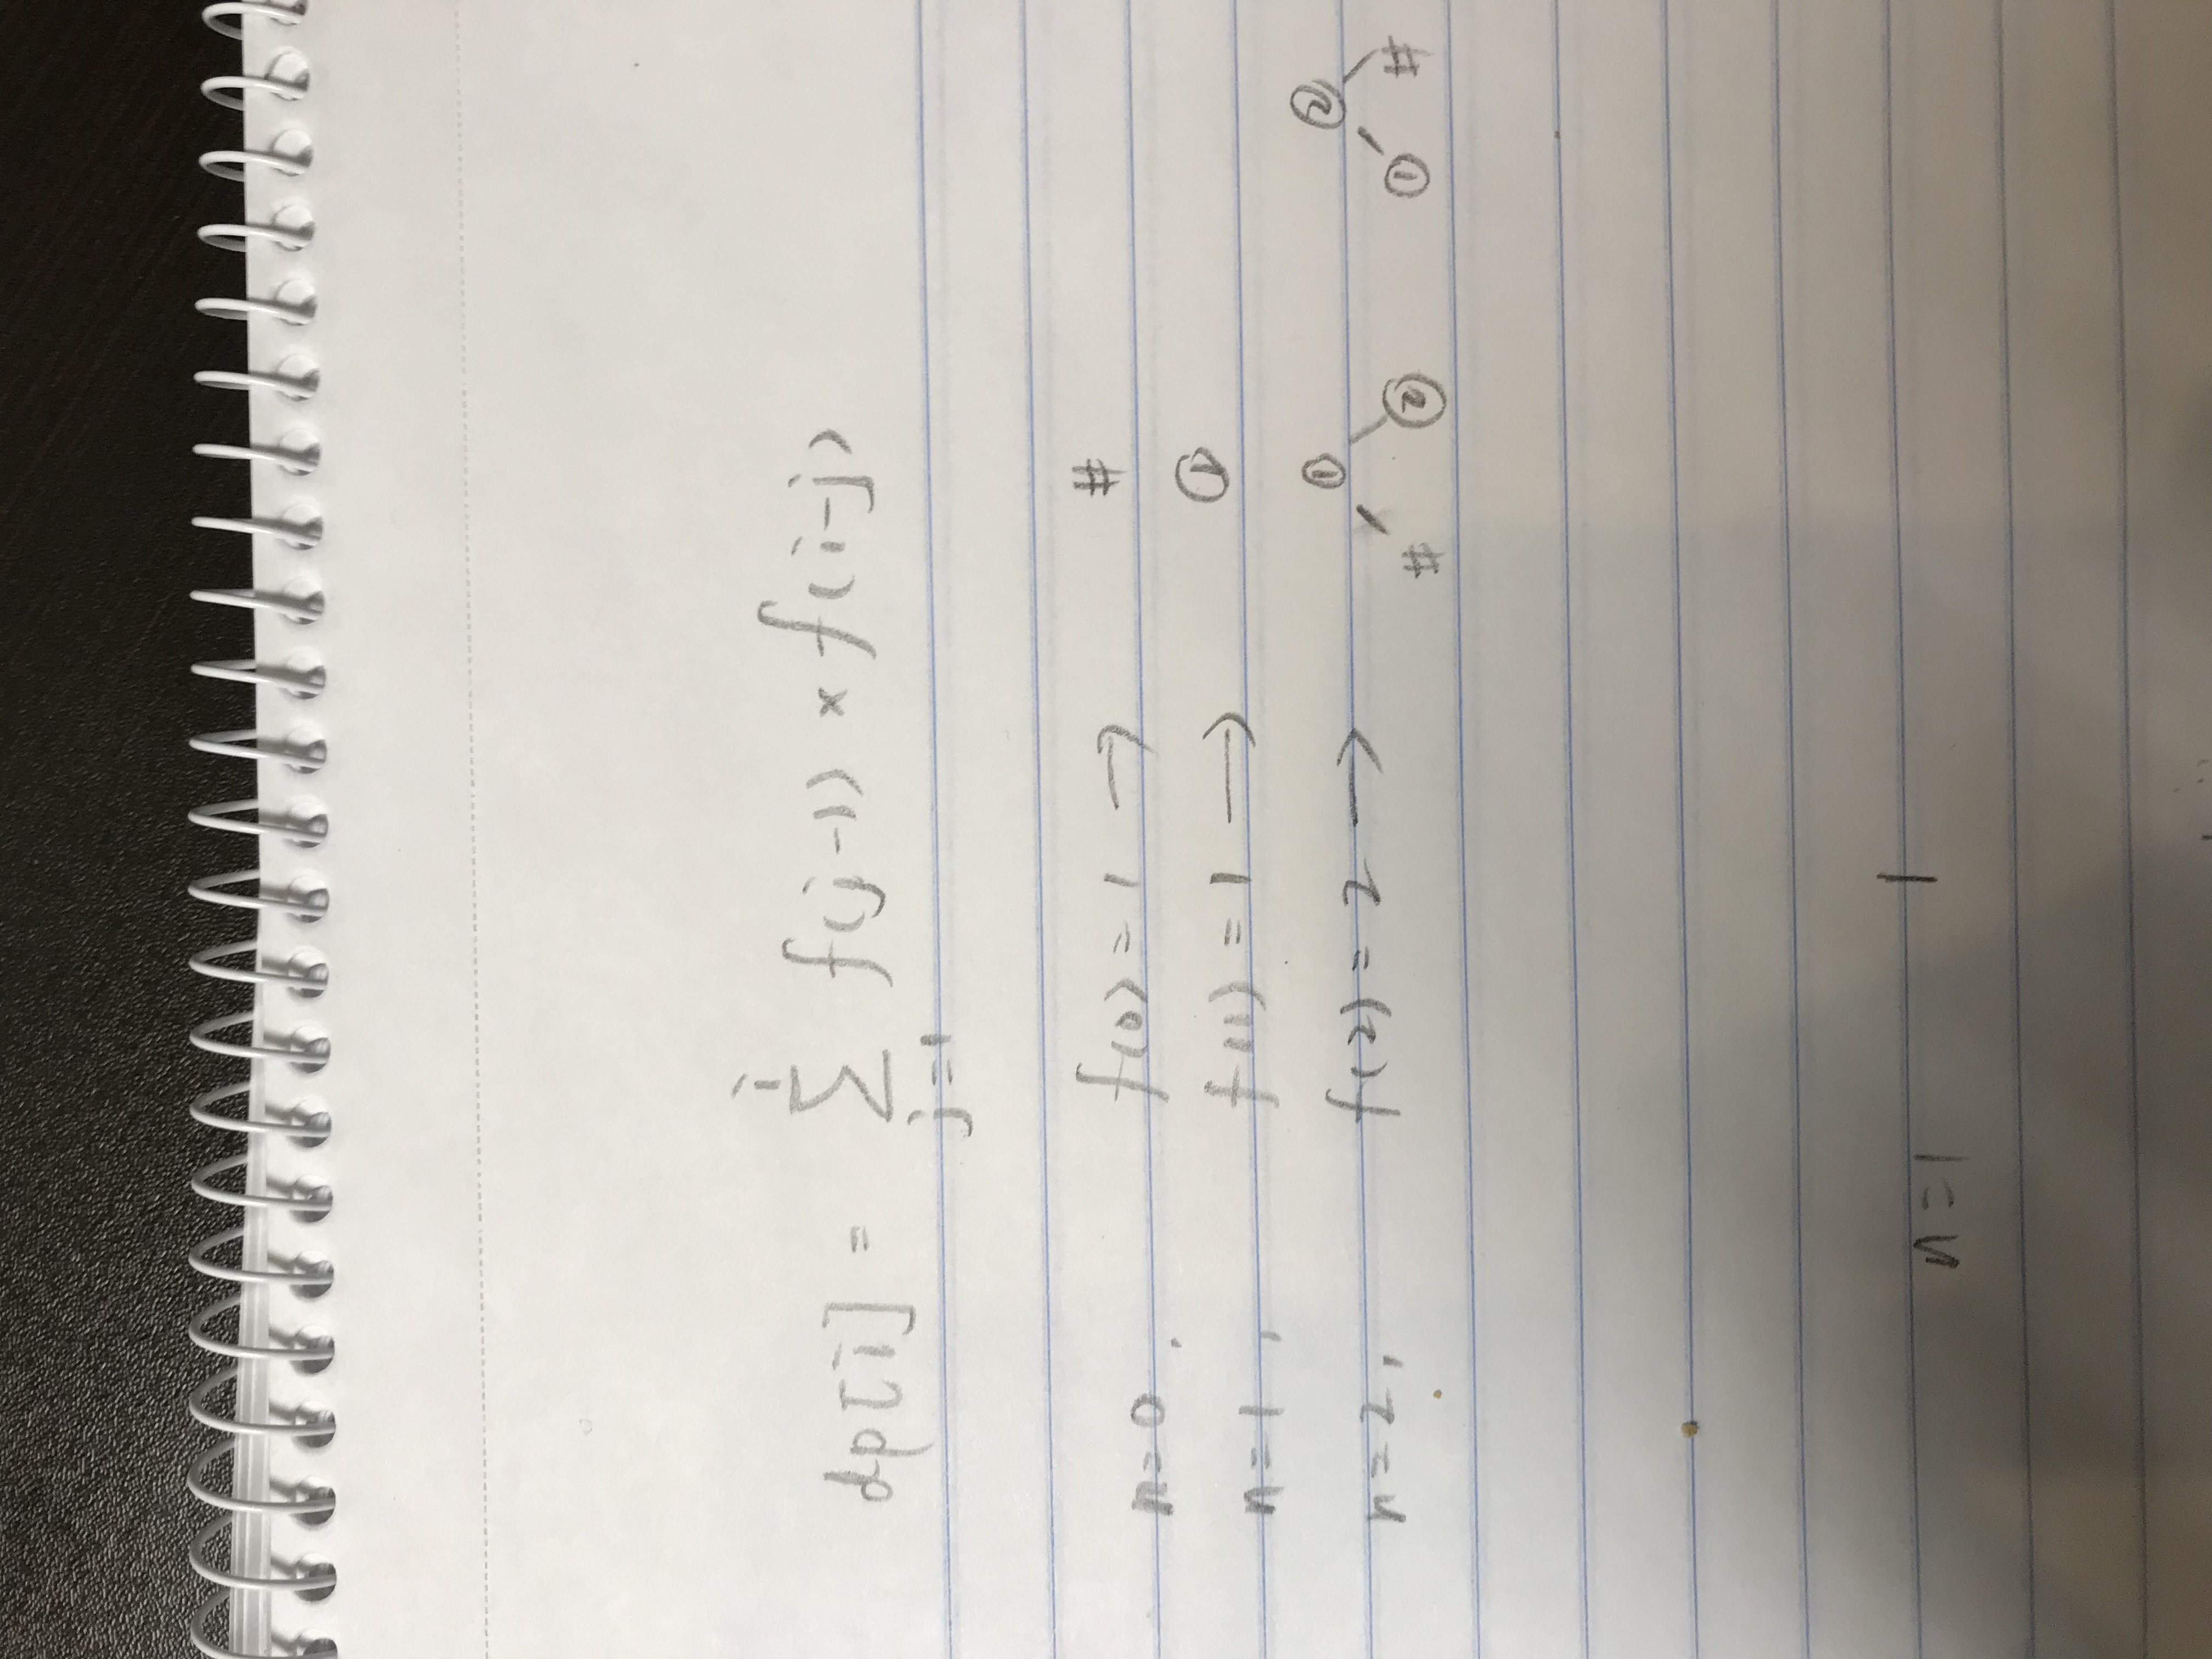 dp[i] = \sum_{j=1}^{i} f(j-1) × f(i-j)
n=0, f(0) = 1 → #
n=1, f(1) = 1 → ①
n=2, f(2) = 2 → # ① ② ① ② #
n=1 1